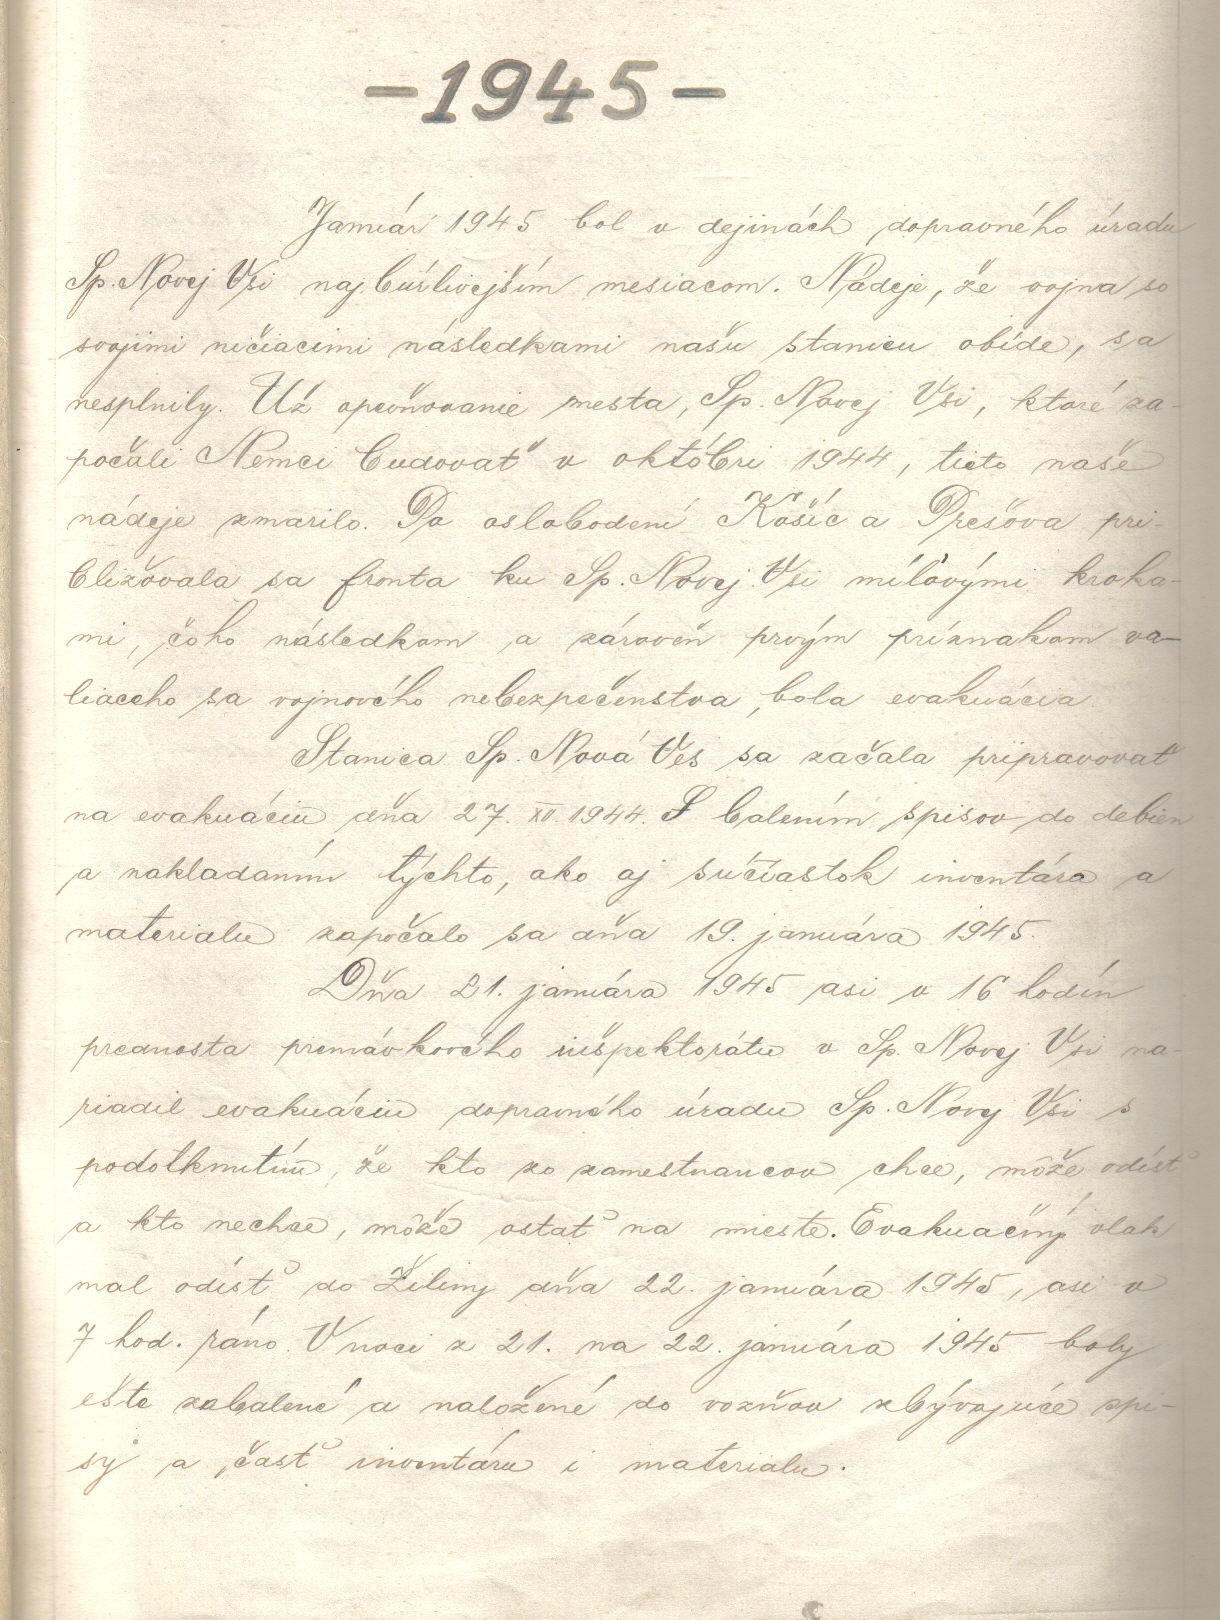 -1945-
Január 1945 bol v dejinách dopravného úradu
Sp. Novej Vsi najbúrlivejším mesiacom. Nádeje, že vojna so
svojimi ničiacimi následkami našu stanicu obíde, sa
nesplnily. Už opevňovanie mesta, Sp. Novej Vsi, ktoré za-
počali Nemci budovať v októbri 1944, tieto naše
nádeje zmarilo. Po oslobodení Košíc a Prešova pri-
bližovala sa fronta ku Sp. Novej Vsi míľovými kroka-
mi, čoho následkom a zároveň prvým príznakom va-
liaceho sa vojnového nebezpečenstva, bola evakuácia.
Stanica Sp. Nová Ves sa začala pripravovať
na evakuáciu dňa 27. XII. 1944. S balením spisov do debien
a nakladaním týchto, ako aj súčiastok inventára a
materialu započalo sa dňa 19. januára 1945.
Dňa 21. januára 1945 asi v 16 hodín
prednosta premávkového inšpektorátu v Sp. Novej Vsi na-
riadil evakuáciu dopravného úradu Sp. Novej Vsi s
podotknutím, že kto zo zamestnancov chce, môže odísť
a kto nechce, môže ostať na mieste. Evakuačný vlak
mal odísť do Žiliny dňa 22. januára 1945, asi v
7 hod. ráno. V noci z 21. na 22. januára 1945 boly
ešte zabalené a naložené do vozňov zbývajúce spi-
sy a časť inventáru i materialu.